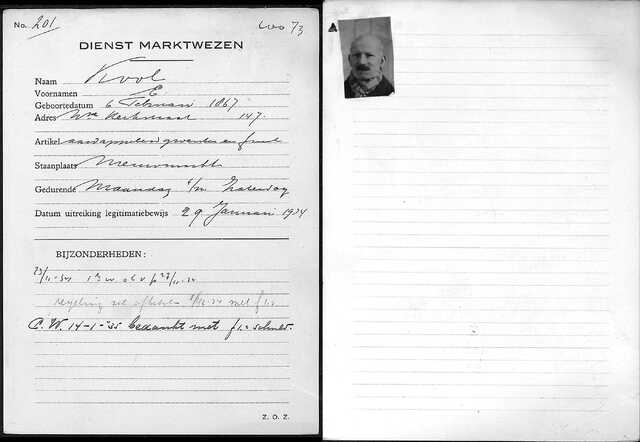 No. 201
DIENST MARKTWEZEN
Naam Kool
Voornamen E
Geboortedatum 6 Februari 1867
Adres Kerkstraat 147.
Artikel aardappelen groenten en fruit
Staanplaats Nieuwmarkt
Gedurende Maandag t/m Zaterdag
Datum uitreiking legitimatiebewijs 29 Januari 1934
BIJZONDERHEDEN:
23/11-34
regeling met f 1.-
C.W. 14-1-'35 bedankt met f 1.- schuld.
Z. O. Z.